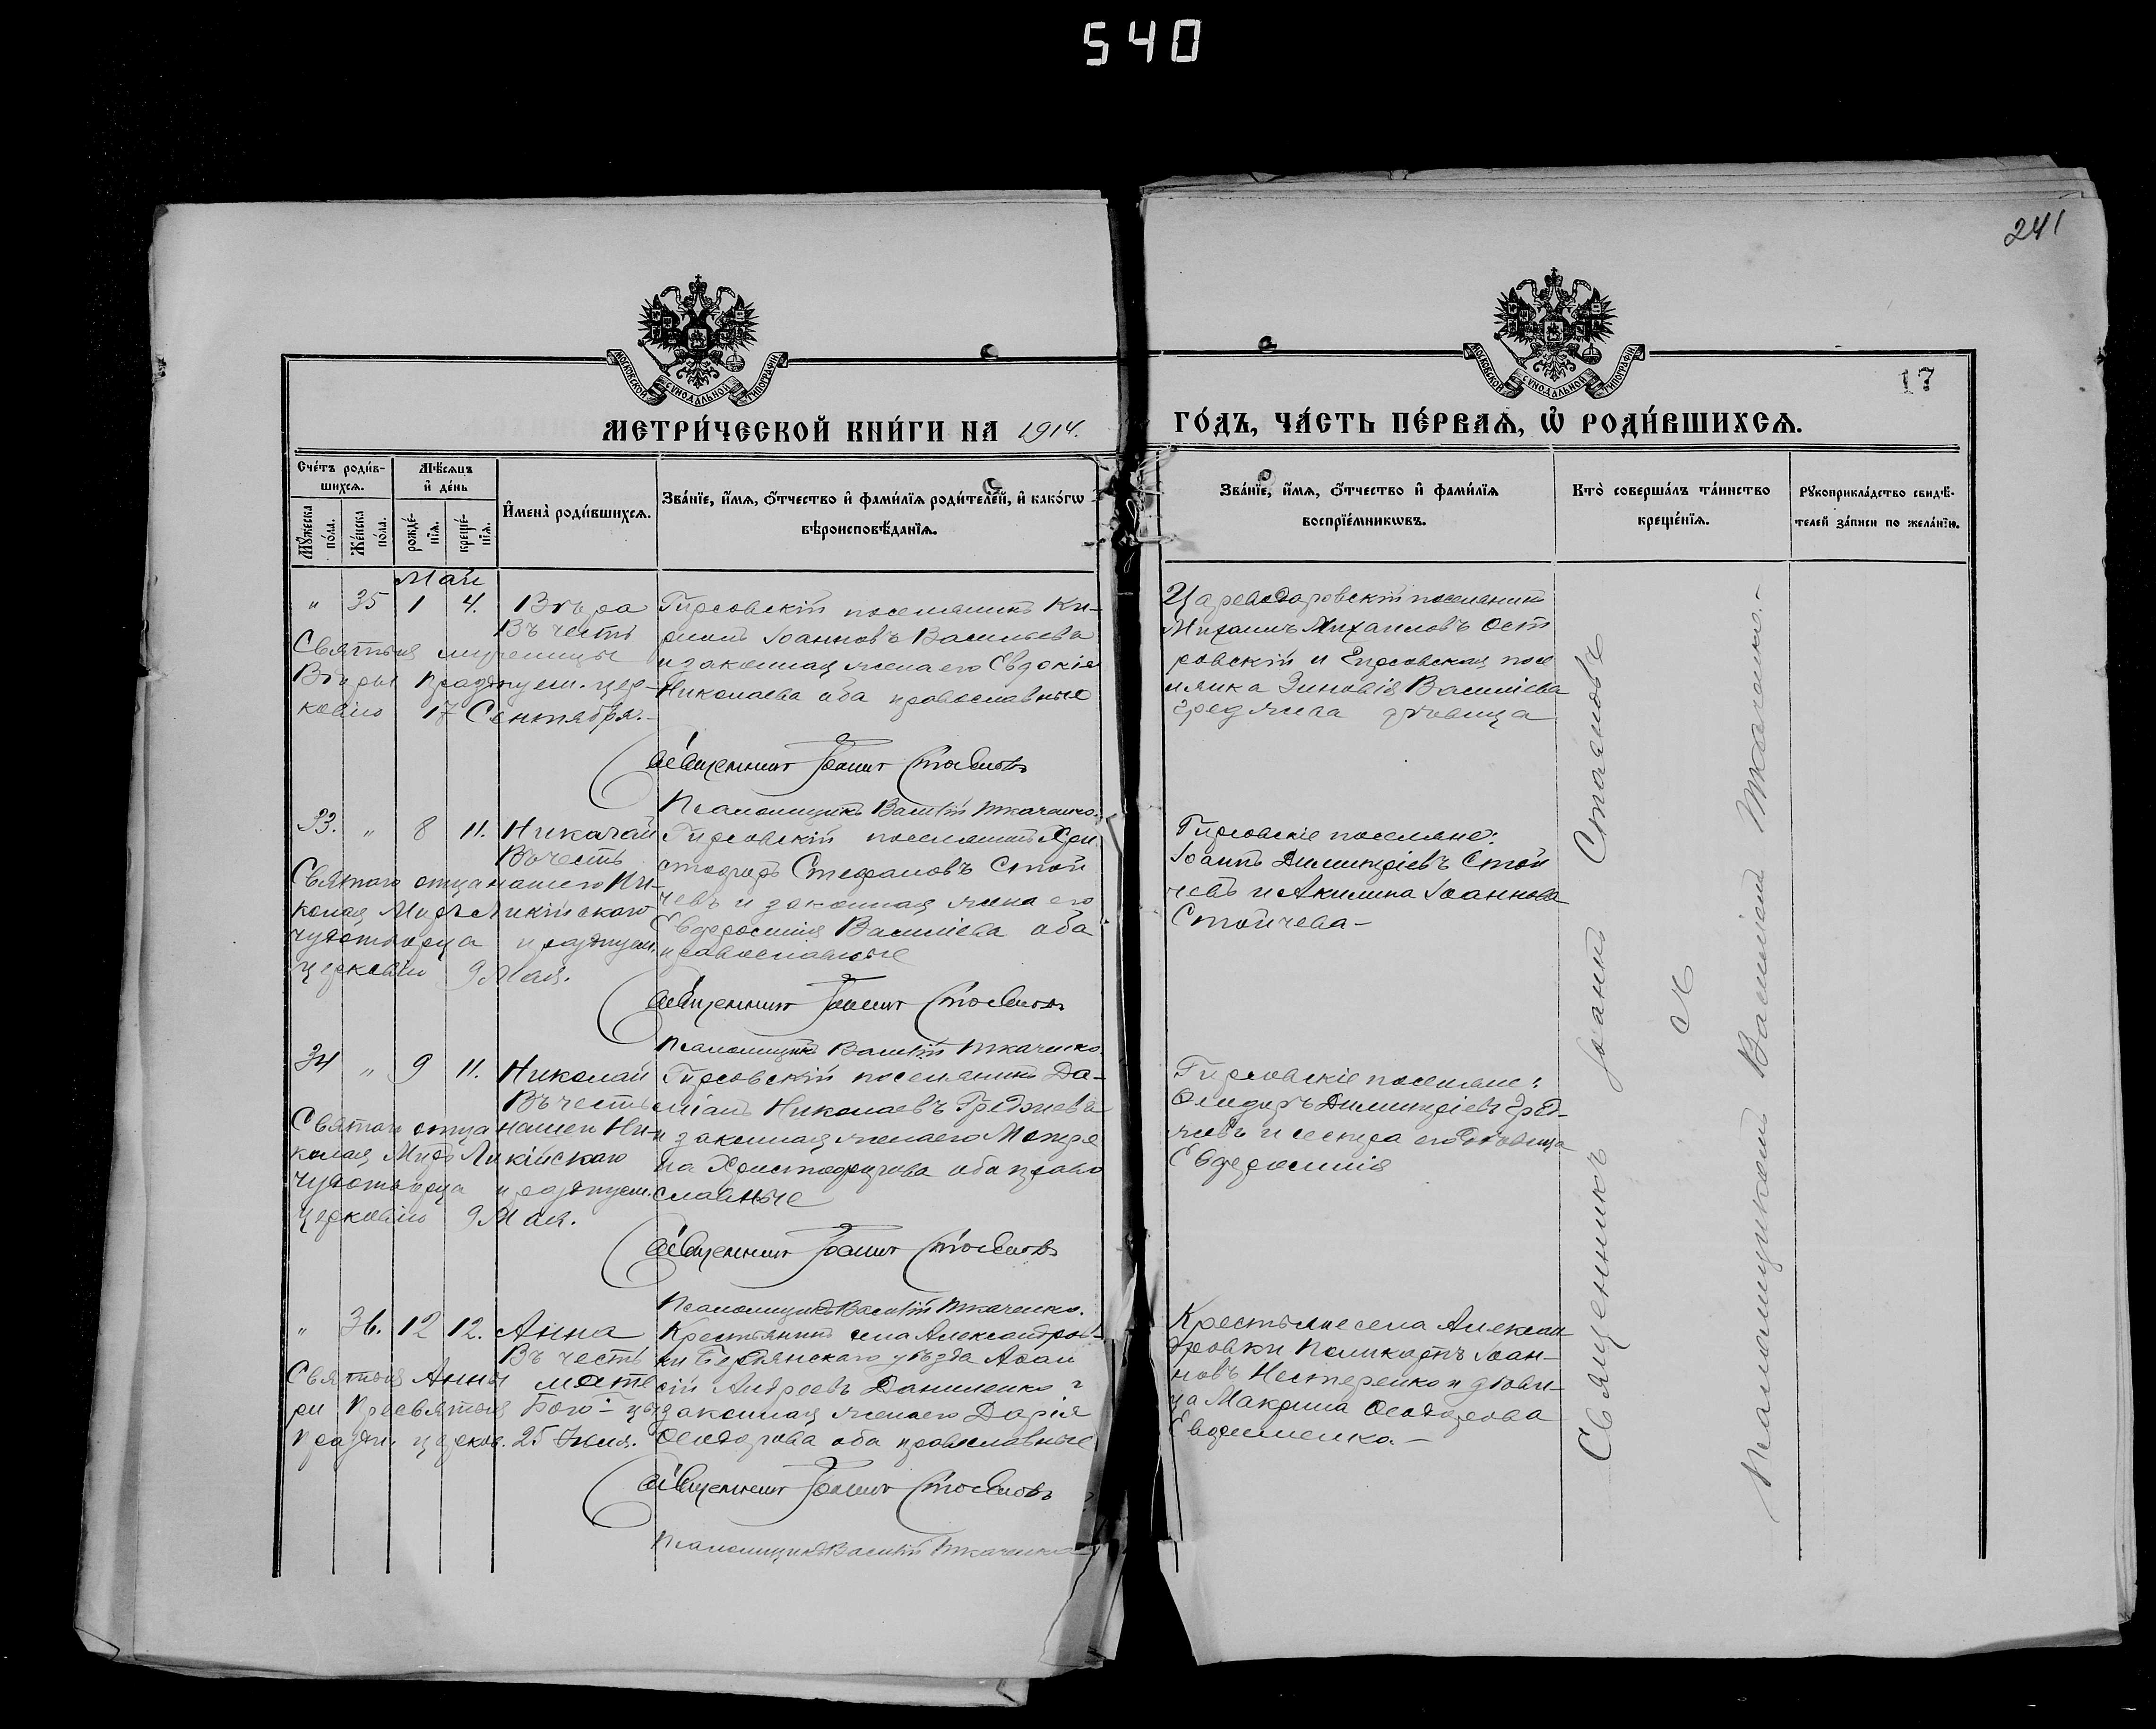 540
241
МОСКОВСКОЙ СУНОДАЛЬНОЙ ТИПОГРАФІИ
МОСКОВСКОЙ СУНОДАЛЬНОЙ ТИПОГРАФІИ
17
МЕТРИ́ЧЕСКОЙ КНИ́ГИ НА 1914.
ГО́ДЪ, ЧА́СТЬ ПЕ́РВАѦ, Ѡ РОДИ́ВШИХСѦ.
Сче́тъ роди́в-
шихсѧ.
Мѣ́сѧцъ
и҆ де́нь
Мꙋ́жеска
по́ла.
Же́нска
по́ла.
рожде́-
нїѧ.
креще́-
нїѧ.
И҆мена̀ роди́вшихсѧ.
Зва́нїе, и҆́мѧ, ѻ҆́тчество и҆ фами́лїѧ роди́телей, и҆ како́гѡ
вѣроисповѣ́данїѧ.
Зва́нїе, и҆́мѧ, ѻ҆́тчество и҆ фами́лїѧ
воспрїе́мникѡвъ.
Кто̀ соверша́лъ та́инство
креще́нїѧ.
Рꙋкоприкла́дство свидѣ́-
телей за́писи по жела́нїю.
Май
" 35 1 4. Вѣра
Въ честь
Святыя мученицы
Вѣры празднуем. цер-
ковію 17 Сентября.
Гирсовскій поселянинъ Ки-
риллъ Іоанновъ Васильева
и законная жена его Евдокія
Николаева оба православные
Священникъ Іоаннъ Стояновъ
Псаломщикъ Василій Ткаченко.
Цареводаровскій поселянинъ
Михаилъ Михаиловъ Ост
ровскій и Гирсовская посе
лянка Зиновія Василіева
Гред дѣвица
33. " 8 11. Николай
Въ честь
Святаго отца нашего Ни-
колая Мирѣ Ликійскаго
чудотворца празднуем.
церковію 9 Мая.
Гирсовскій поселянинъ Хри
стофоръ Стефановъ Стой
чевъ и законная жена его
Евфросинія Василіева оба
православные
Священникъ Іоаннъ Стояновъ
Псаломщикъ Василій Ткаченко.
Гирсовскіе поселяне:
Іоаннъ Димитріевъ Стой
чевъ и Акилина Іоаннова
Стойчева-
34 " 9 11. Николай
Въ честь
Святаго отца нашего Ни-
колая Мирѣ Ликійскаго
чудотворца празднуем.
церковію 9 Мая.
Гирсовскій поселянинъ Да-
міанъ Николаевъ Греджева
и законная жена его
на Христофорова оба право
славные
Священникъ Іоаннъ Стояновъ
Псаломщикъ Василій Ткаченко.
Гирсовскіе поселяне:
Димитріевъ Гред-
жевъ и сестра его дѣвица
Евфросинія
" 36. 12 12. Анна
Въ честь
Святыя Анны мате
ри Пресвятыя Бого-цы
праздн. церков. 25 Іюля.
Крестьянинъ села Александров-
ки Бердянскаго уѣзда Афан
сій Андреевъ Даниленко и
законная жена его Дарія
Ѳеодорова оба православные
Священникъ Іоаннъ Стояновъ
Псаломщикъ Василій Ткаченко
Крестьяне села Алексан-
дровки Поликарпъ Іоан-
новъ Нестеренко и дѣви-
ца Макрина Ѳеодорова
Евфименко.-
Священникъ Іоаннъ Стояновъ
съ
Псаломщикомъ Василіемъ Ткаченко.-